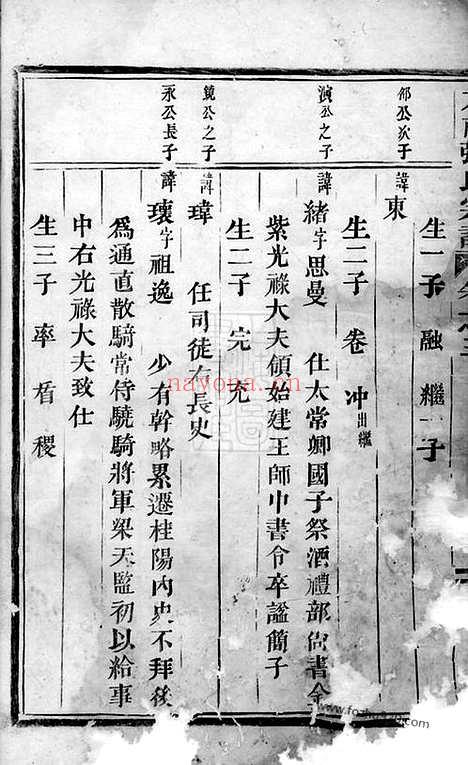 邵公次子
諱東
生一子 融 繼一子
演公之子
諱緒字思曼 仕太常卿國子祭酒禮部尚書金
紫光祿大夫領始建王師中書令卒諡簡子
生二子 卷 沖出繼
鏡公之子
諱瑋 任司徒右長史
生二子 完 充
永公長子
諱瓌字祖逸 少有幹略累遷桂陽內史不拜後
爲通直散騎常侍驍騎將軍梁天監初以給事
中右光祿大夫致仕
生三子 率 盾 稷
nayona.cn
www.fozhu920.com